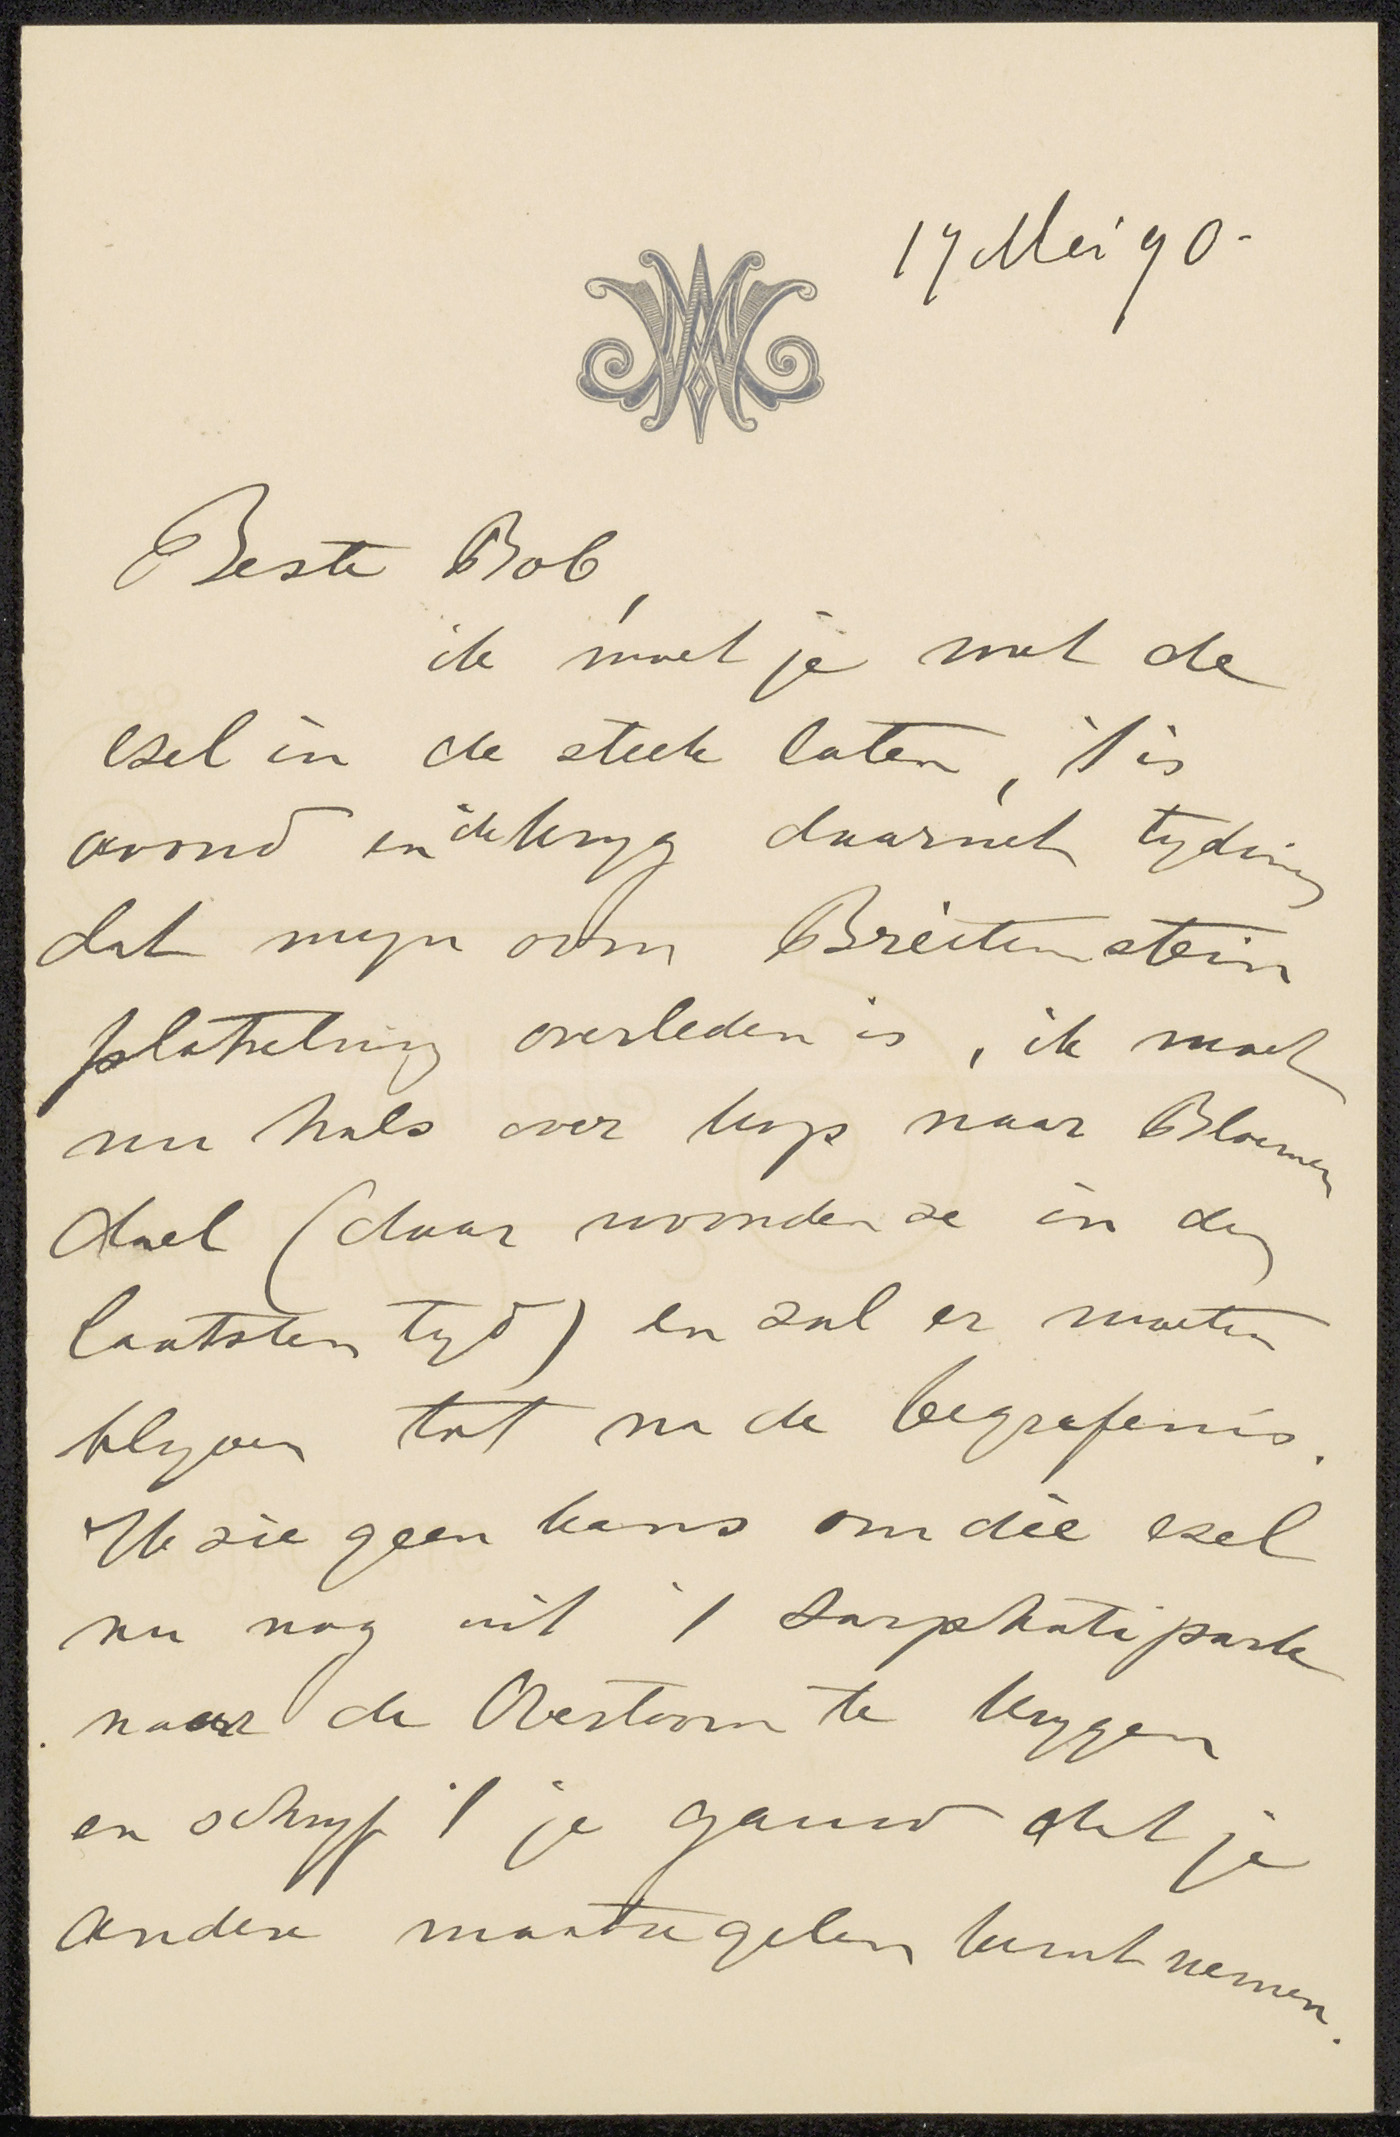 17 Mei 90-
Beste Bob,
ik moet je met de
ezel in de steek laten, 't is
avond en ik kryg daarnet tyding
dat myn oom Breitenstein
plotseling overleden is, ik moet
nu hals over kop naar Bloemen
daal (daar woonden ze in den
laatsten tyd) en zal er moeten
blyven tot na de begrafenis.
Ik zie geen kans om die ezel
nu nog uit 't Sarphatipark
naar de Overtoom te krygen
en schryf 't je gauw dat je
andere maatregelen kunt nemen.